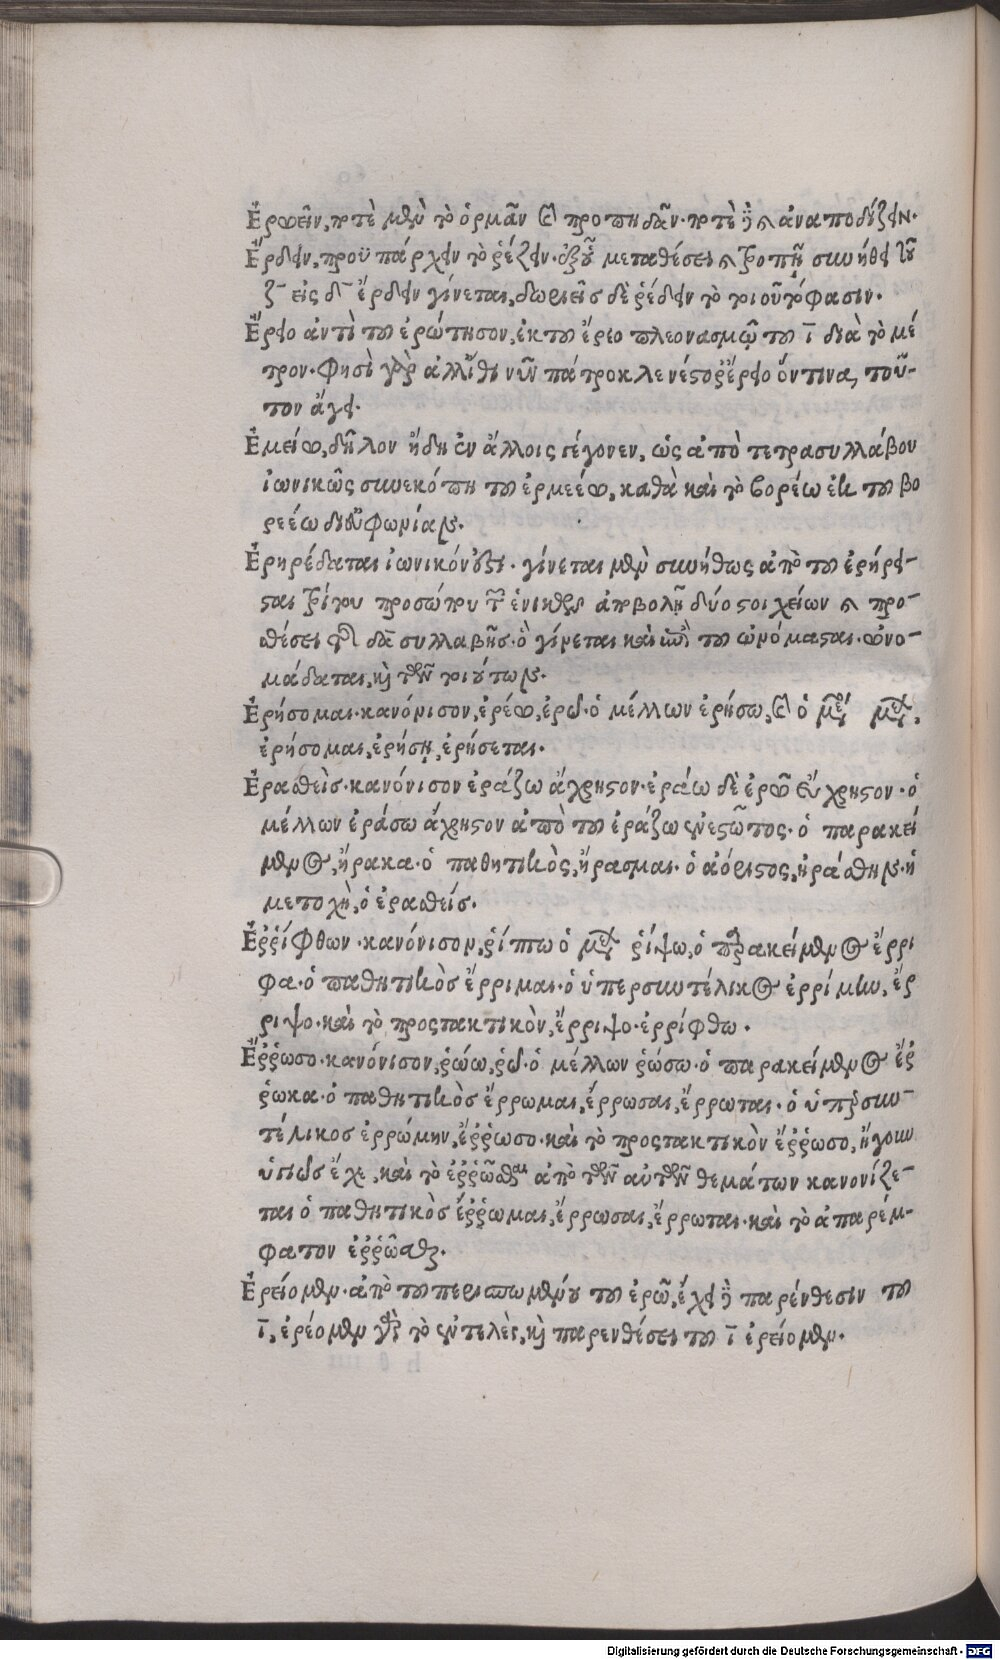 Ἐρωεῖν, ποτὲ μὲν τὸ ὁρμᾶν καὶ προπηδᾶν· ποτὲ δὲ καὶ ἀναποδίζειν·
Ἔρδειν, προϋπάρχειν τὸ ῥέζειν· ἐξ οὗ μεταθέσει καὶ τροπῇ συνήθει τοῦ
ζ εἰς δ ἔρδειν γίνεται, δωριεῖς δὲ ῥέδειν τὸ τοιοῦτό φασιν·
Ἔρειο ἀντὶ τοῦ ἐρώτησον, ἐκ τοῦ ἔρεο πλεονασμῷ τοῦ ῑ διὰ τὸ μέ
τρον· φησὶ γὰρ ἀλλ' ἴθι νῦν πάτροκλε νέστορ' ἔρειο ὅντινα, τοῦ-
τον ἄγει·
Ἑρμείω, δῆλον ἤδη ἐν ἄλλοις γέγονεν, ὡς ἀπὸ τετρασυλλάβου
ἰωνικῶς συνεκόπη τοῦ ἑρμεέω, καθὰ καὶ τὸ βορέω ἐκ τοῦ βο
ρεέω δι' εὐφωνίαν·
Ἐρηρέδαται ἰωνικόν ἐστι· γίνεται μὲν συνήθως ἀπὸ τοῦ ἐρήρει-
σται τρίτου προσώπου τοῦ ἑνικοῦ ἀποβολῇ δύο στοιχείων καὶ προ-
θέσει τῆς δα συλλαβῆς· ὃ γίνεται καὶ ἐπὶ τοῦ ὠνόμασται· ὠνο-
μάδαται, καὶ τῶν τοιούτων·
Ἐρήσομαι· κανόνισον, ἐρέω, ἐρῶ· ὁ μέλλων ἐρήσω, καὶ ὁ μέσος μέλλων,
ἐρήσομαι, ἐρήσῃ, ἐρήσεται·
Ἐρασθεὶς· κανόνισον ἐράζω ἄχρηστον· ἐράω δὲ ἐρῶ εὔχρηστον· ὁ
μέλλων ἐράσω ἄχρηστον ἀπὸ τοῦ ἐράζω ἐνεστῶτος· ὁ παρακεί
μενος, ἤρακα· ὁ παθητικὸς, ἤρασμαι· ὁ ἀόριστος, ἠράσθην· ἡ
μετοχὴ, ὁ ἐρασθείς·
Ἐῤῥίφθων· κανόνισον, ῥίπτω ὁ μέλλων ῥίψω, ὁ παρακείμενος ἔρρι
φα· ὁ παθητικὸς ἔρριμαι· ὁ ὑπερσυντέλικος ἐρρίμην, ἔρ
ριψο· καὶ τὸ προστακτικὸν, ἔρριψο· ἐρρίφθω·
Ἔῤῥωσο· κανόνισον, ῥώω, ῥῶ· ὁ μέλλων ῥώσω· ὁ παρακείμενος ἔῤ
ῥωκα· ὁ παθητικὸς ἔρρωμαι, ἔρρωσαι, ἔρρωται· ὁ ὑπερσυν-
τέλικος ἐρρώμην, ἔῤῥωσο· καὶ τὸ προστακτικὸν ἔῤῥωσο, ἤγουν
ὑγιῶς ἔχε, καὶ τὸ ἐῤῥῶσθαι ἀπὸ τῶν αὐτῶν θεμάτων κανονίζε-
ται ὁ παθητικὸς ἔῤῥωμαι, ἔρρωσαι, ἔρρωται· καὶ τὸ ἀπαρέμ-
φατον ἐῤῥῶσθαι·
Ἐρείομεν· ἀπὸ τοῦ περισπωμένου τοῦ ἐρῶ, ἔχει δὲ παρένθεσιν τοῦ
ῑ, ἐρέομεν γὰρ τὸ ἐντελὲς, καὶ παρενθέσει τοῦ ῑ ἐρείομεν·
Digitalisierung gefördert durch die Deutsche Forschungsgemeinschaft - DFG